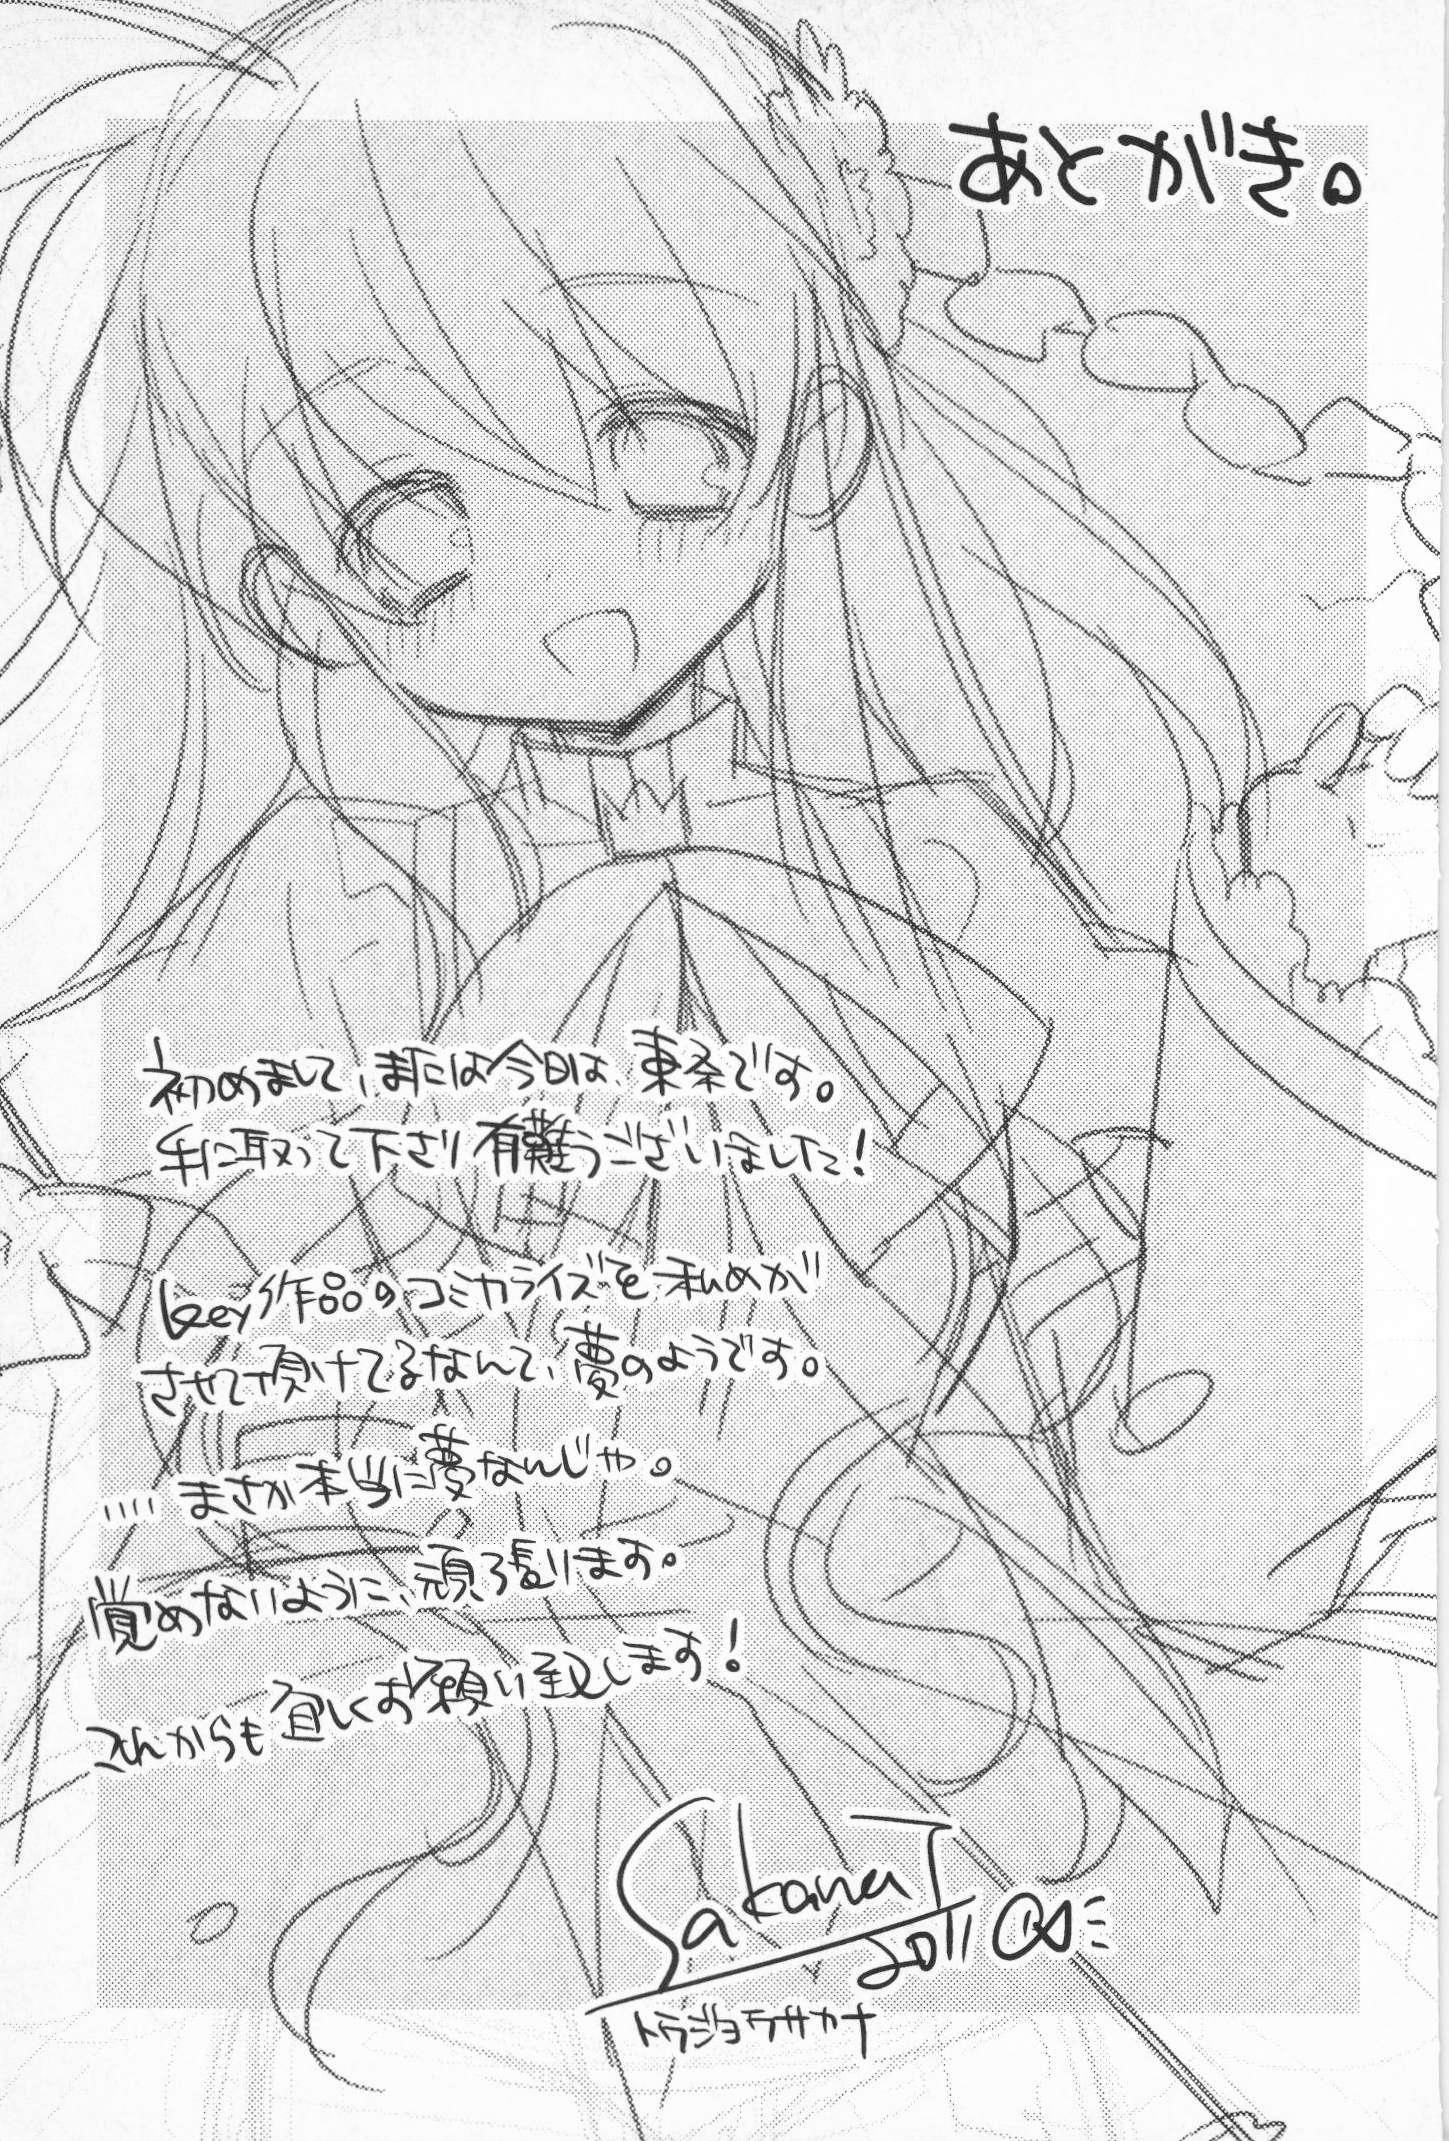 あとがき。
初めまして、または今日は、東条です。
手に取って下さり有難うございました!
key作品のコミカライズを私めが
させて頂けてるなんて、夢のようです。
....まさか本当に夢なんじゃ。
覚めないように、頑張ります。
これからも宜しくお願い致します!
Sakana T
2011
トウジョウサカナ